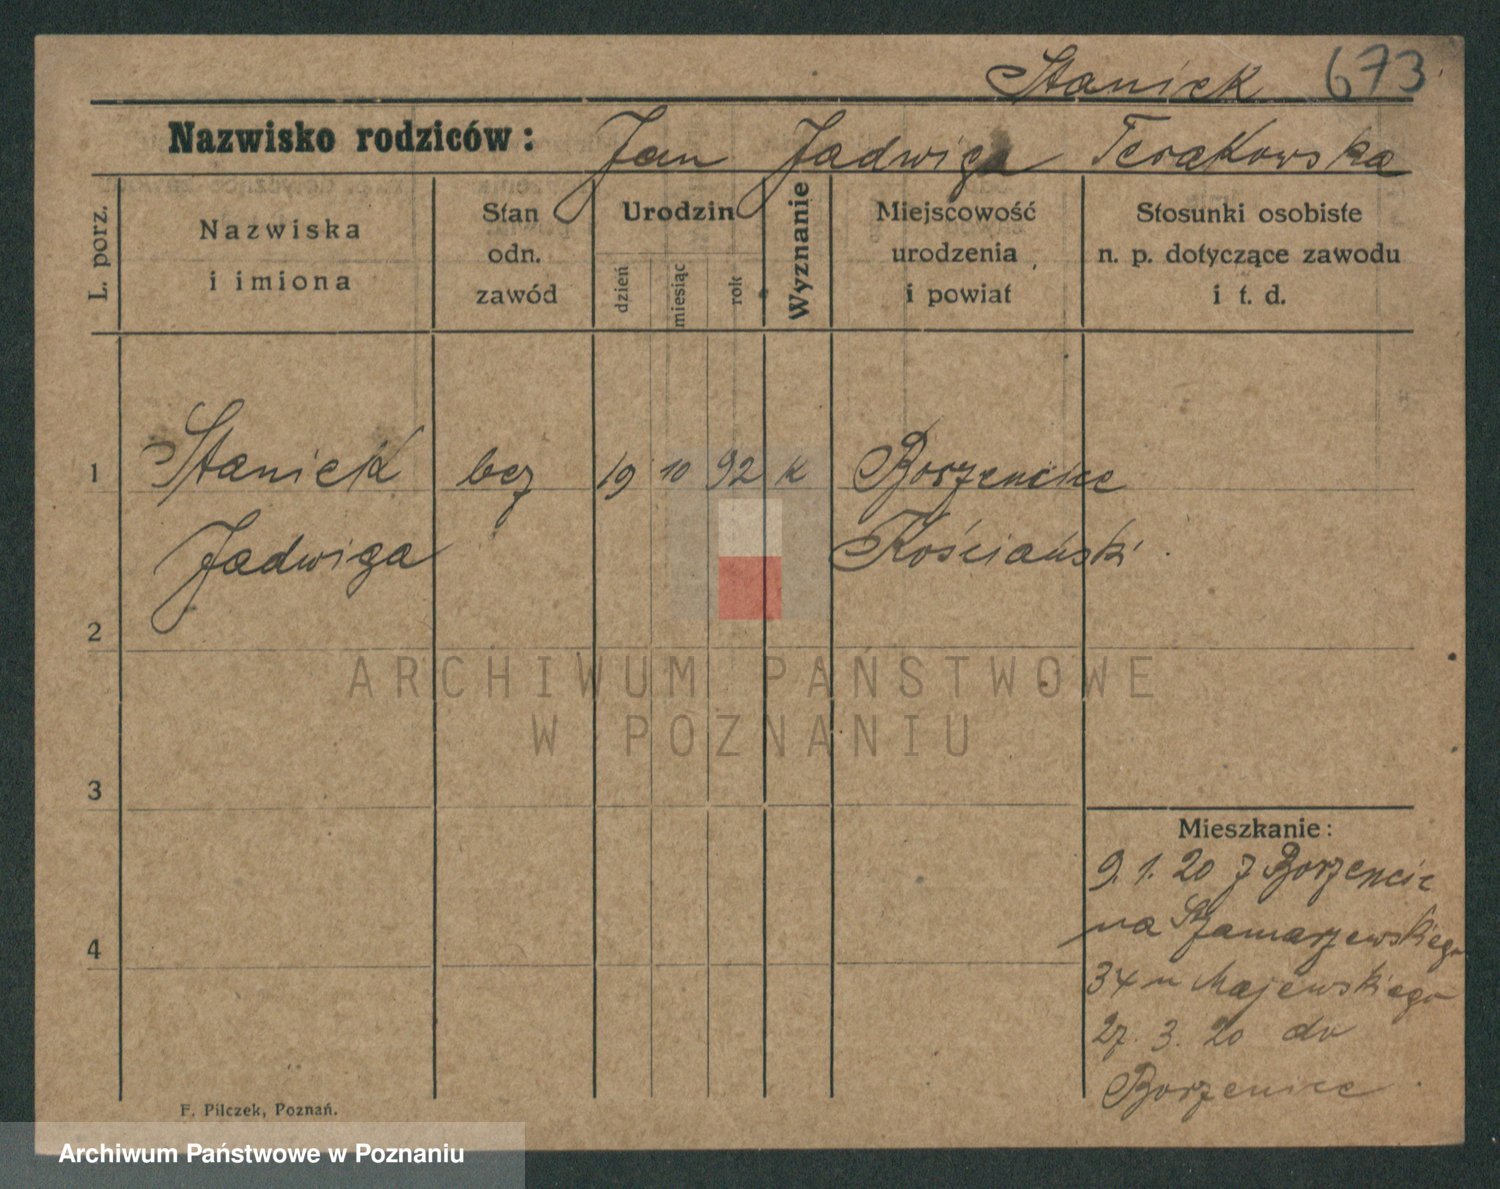 Staniek 673
Nazwisko rodziców: Jan Jadwiga Terakowska
L. porz.
Nazwiska
i imiona
Stan
odn.
zawód
Urodzin
dzień
miesiąc
rok
Wyznanie
Miejscowość
urodzenia
i powiat
Stosunki osobiste
n. p. dotyczące zawodu
i t. d.
1 Staniek bez 19 10 92 k Borzencice
Jadwiga Kościański
2
ARCHIWUM PAŃSTWOWE
W POZNANIU
3
Mieszkanie:
9. 1. 20 z Borzencic
na Szamarzewskiego
34 u Majewskiego
4
27. 3. 20 do
Borzenice
F. Pilczek, Poznań.
Archiwum Państwowe w Poznaniu